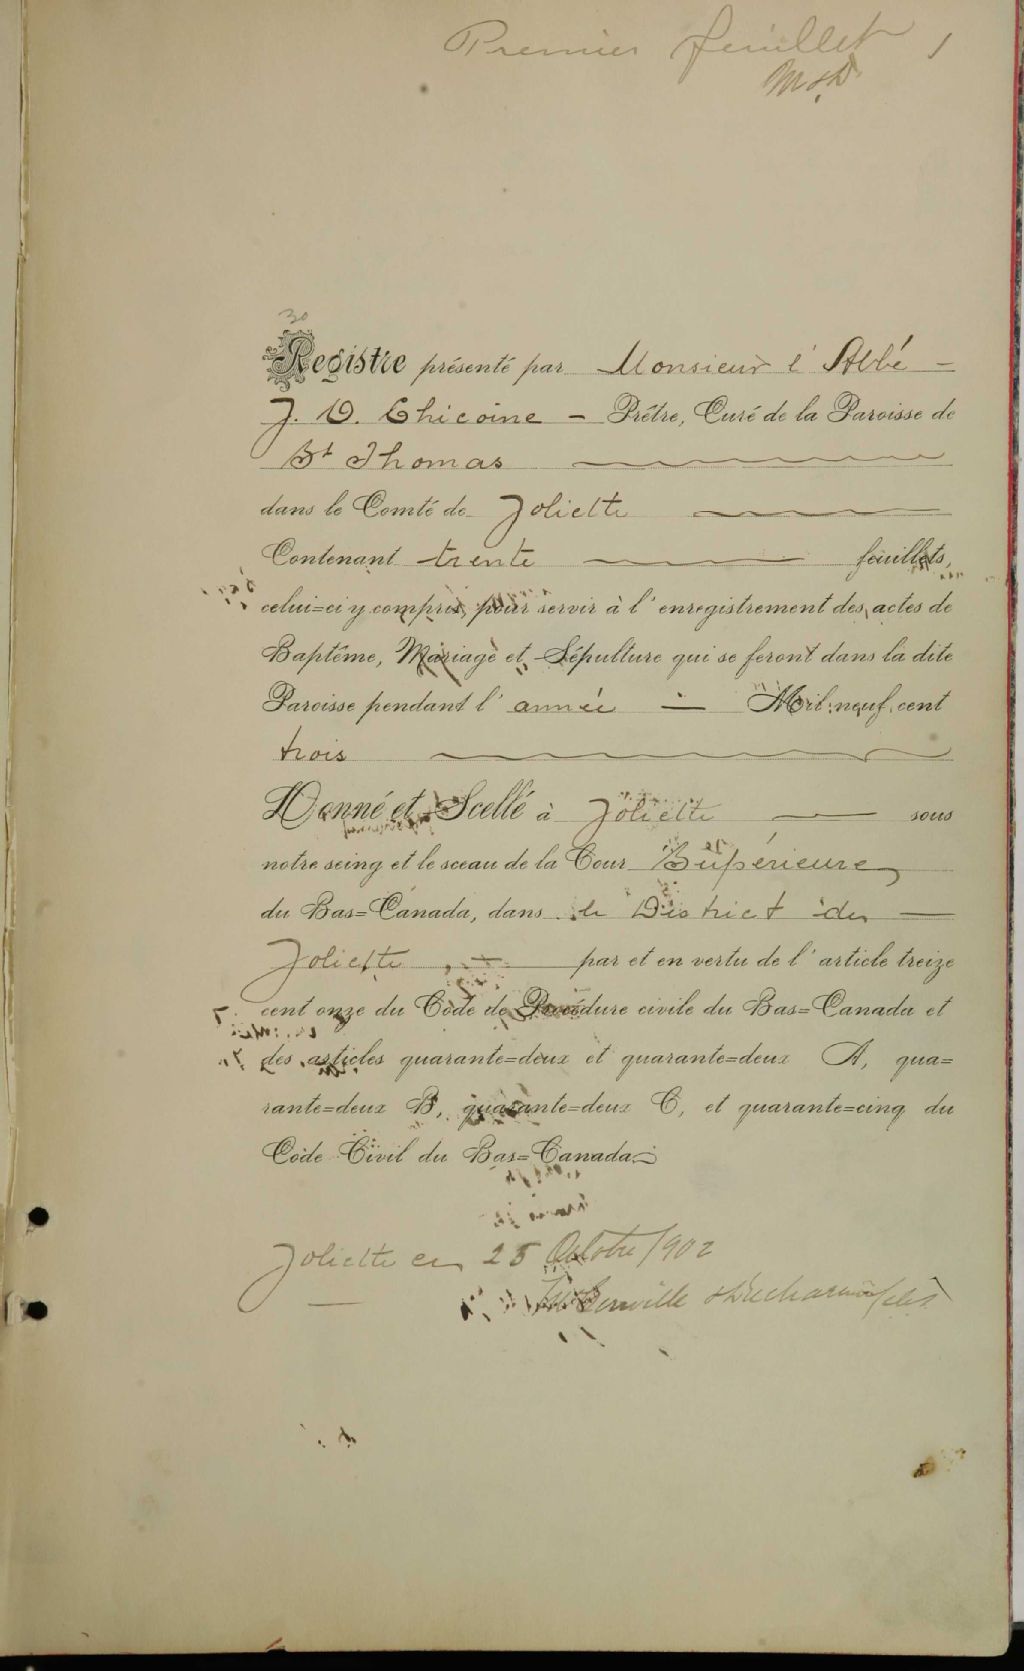 Premier feuillet 1
M & D
30
Registre présenté par Monsieur l'Abbé –
J. O. Chicoine – Prêtre, Curé de la Paroisse de
St Thomas
dans le Comté de Joliette
Contenant trente feuillets,
celui=ci y compris, pour servir à l'enregistrement des actes de
Baptême, Mariage et Sépulture qui se feront dans la dite
Paroisse pendant l'année — Mil neuf cent
trois
Donné et Scellé à Joliette — sous
notre seing et le sceau de la Cour Supérieure
du Bas=Canada, dans le District de —
Joliette, — par et en vertu de l'article treize
cent onze du Code de Procédure civile du Bas=Canada et
des articles quarante=deux et quarante=deux A, qua=
rante=deux B, quarante=deux C, et quarante=cinq du
Code Civil du Bas=Canada.
Joliette ce 25 Octobre /902
& Ducharme